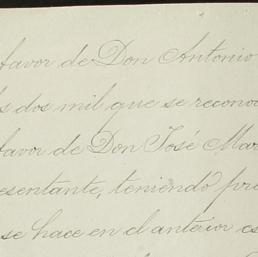 favor de Don Antonio
dos mil que se recono
favor de Don José Mar
esentante, teniendo pre
se hace en el anterior es